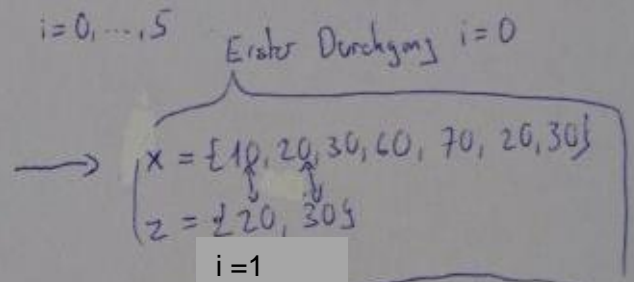 i=0,...,5
Erster Durchgang i=0
x = {10, 20, 30, 60, 70, 20, 30}
z = {20, 30}
i =1